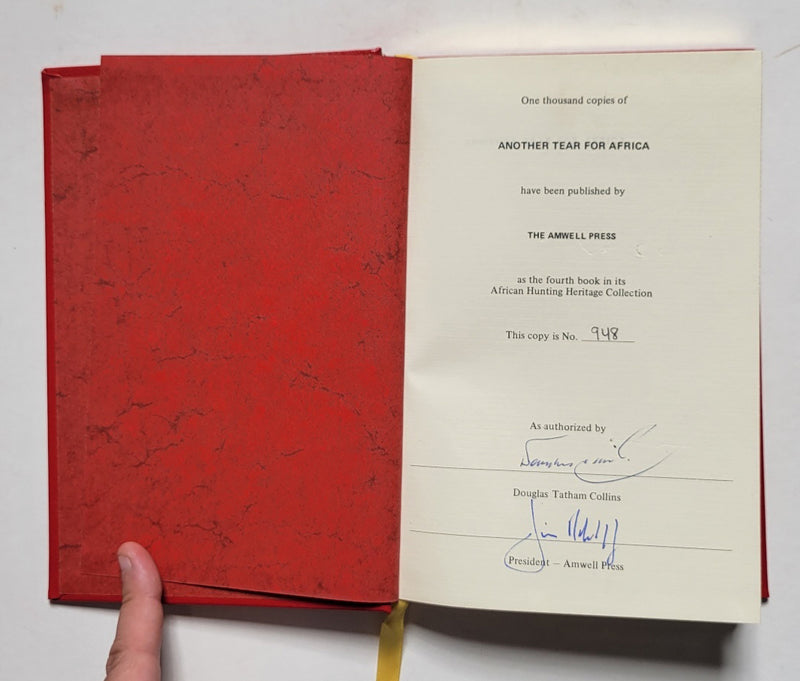 One thousand copies of
ANOTHER TEAR FOR AFRICA
have been published by
THE AMWELL PRESS
as the fourth book in its
African Hunting Heritage Collection
This copy is No. 948
As authorized by
Douglas Tatham Collins
President — Amwell Press